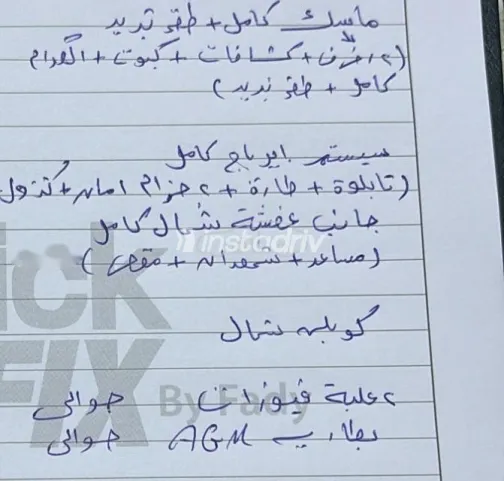 ماسك كامل + طقم تبريد
(٢ رفرف + كشافات + كبوت + اكصدام
كامل + طقم تبريد)
سيستم ايرباج كامل
(تابلوة + طارة + ٢ حزام امان + كنترول
جانب عفشة شمال كامل
(مساعد + شمعدان + مقص)
كوبلن شمال
٢ علبة فيوزات حوالى
بطارية AGM حوالى
instadriv
ICK
FIX
By Fady